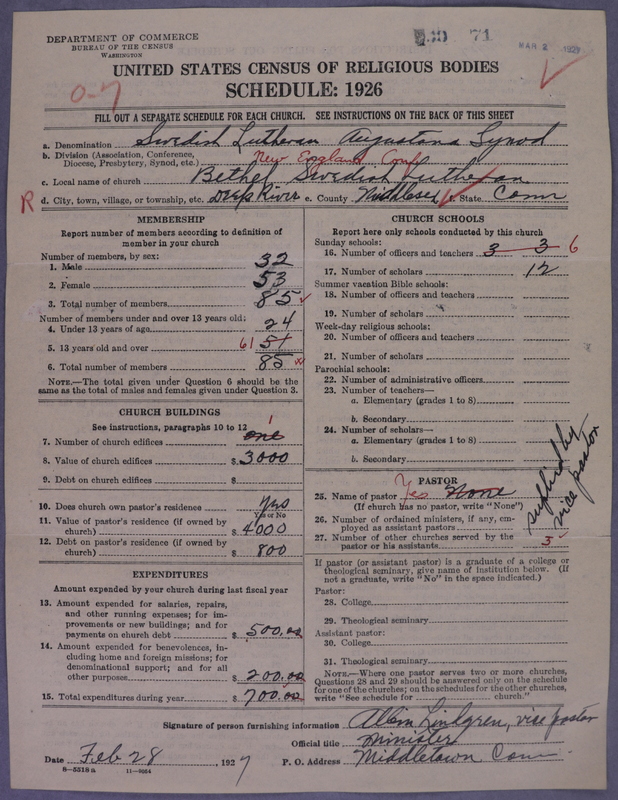 DEPARTMENT OF COMMERCE
BUREAU OF THE CENSUS
WASHINGTON
71
MAR 2 1927
UNITED STATES CENSUS OF RELIGIOUS BODIES
SCHEDULE: 1926
0-7
FILL OUT A SEPARATE SCHEDULE FOR EACH CHURCH. SEE INSTRUCTIONS ON THE BACK OF THIS SHEET
a. Denomination Swedish Lutheran Augustana Synod
b. Division (Association, Conference, Diocese, Presbytery, Synod, etc.) New England Conf
c. Local name of church Bethel Swedish Lutheran
R d. City, town, village, or township, etc. Deep River e. County Middlesex f. State Conn
MEMBERSHIP
Report number of members according to definition of
member in your church
Number of members, by sex:
1. Male 32
2. Female 53
3. Total number of members 85
Number of members under and over 13 years old:
4. Under 13 years of age 24
5. 13 years old and over 61 51
6. Total number of members 85
NOTE.—The total given under Question 6 should be
same as the total of males and females given under Question 3.
CHURCH BUILDINGS
See instructions, paragraphs 10 to 12
7. Number of church edifices one 1
8. Value of church edifices $ 3000
9. Debt on church edifices $
10. Does church own pastor's residence Yes
Yes or No
11. Value of pastor's residence (if owned by
church) $ 4000
12. Debt on pastor's residence (if owned by
church) $ 800
EXPENDITURES
Amount expended by your church during last fiscal year
13. Amount expended for salaries, repairs,
and other running expenses; for im-
provements or new buildings; and for
payments on church debt $ 500.00
14. Amount expended for benevolences,
including home and foreign missions; for
denominational support; and for all
other purposes $ 200.00
15. Total expenditures during year $ 700.00
CHURCH SCHOOLS
Report here only schools conducted by this church
Sunday schools:
16. Number of officers and teachers 3 3 6
17. Number of scholars 12
Summer vacation Bible schools:
18. Number of officers and teachers
19. Number of scholars
Week-day religious schools:
20. Number of officers and teachers
21. Number of scholars
Parochial schools:
22. Number of administrative officers
23. Number of teachers—
a. Elementary (grades 1 to 8)
b. Secondary
24. Number of scholars—
a. Elementary (grades 1 to 8)
b. Secondary
supplied by
vice pastor
PASTOR
25. Name of pastor Yes None
(If church has no pastor, write "None")
26. Number of ordained ministers, if any, em-
ployed as assistant pastors
27. Number of other churches served by the
pastor or his assistants 3
If pastor (or assistant pastor) is a graduate of a college or
theological seminary, give name of institution below. (If
not a graduate, write "No" in the space indicated.)
Pastor:
28. College
29. Theological seminary
Assistant pastor:
30. College
31. Theological seminary
NOTE.—Where one pastor serves two or more churches,
Questions 28 and 29 should be answered only on the schedule
for one of the churches; on the schedules for the other churches,
write "See schedule for church."
Signature of person furnishing information Albin Lindgren, vice pastor
Official title Minister
Date Feb 28, 1927 P. O. Address Middletown Conn
8-5518 a 11-9054